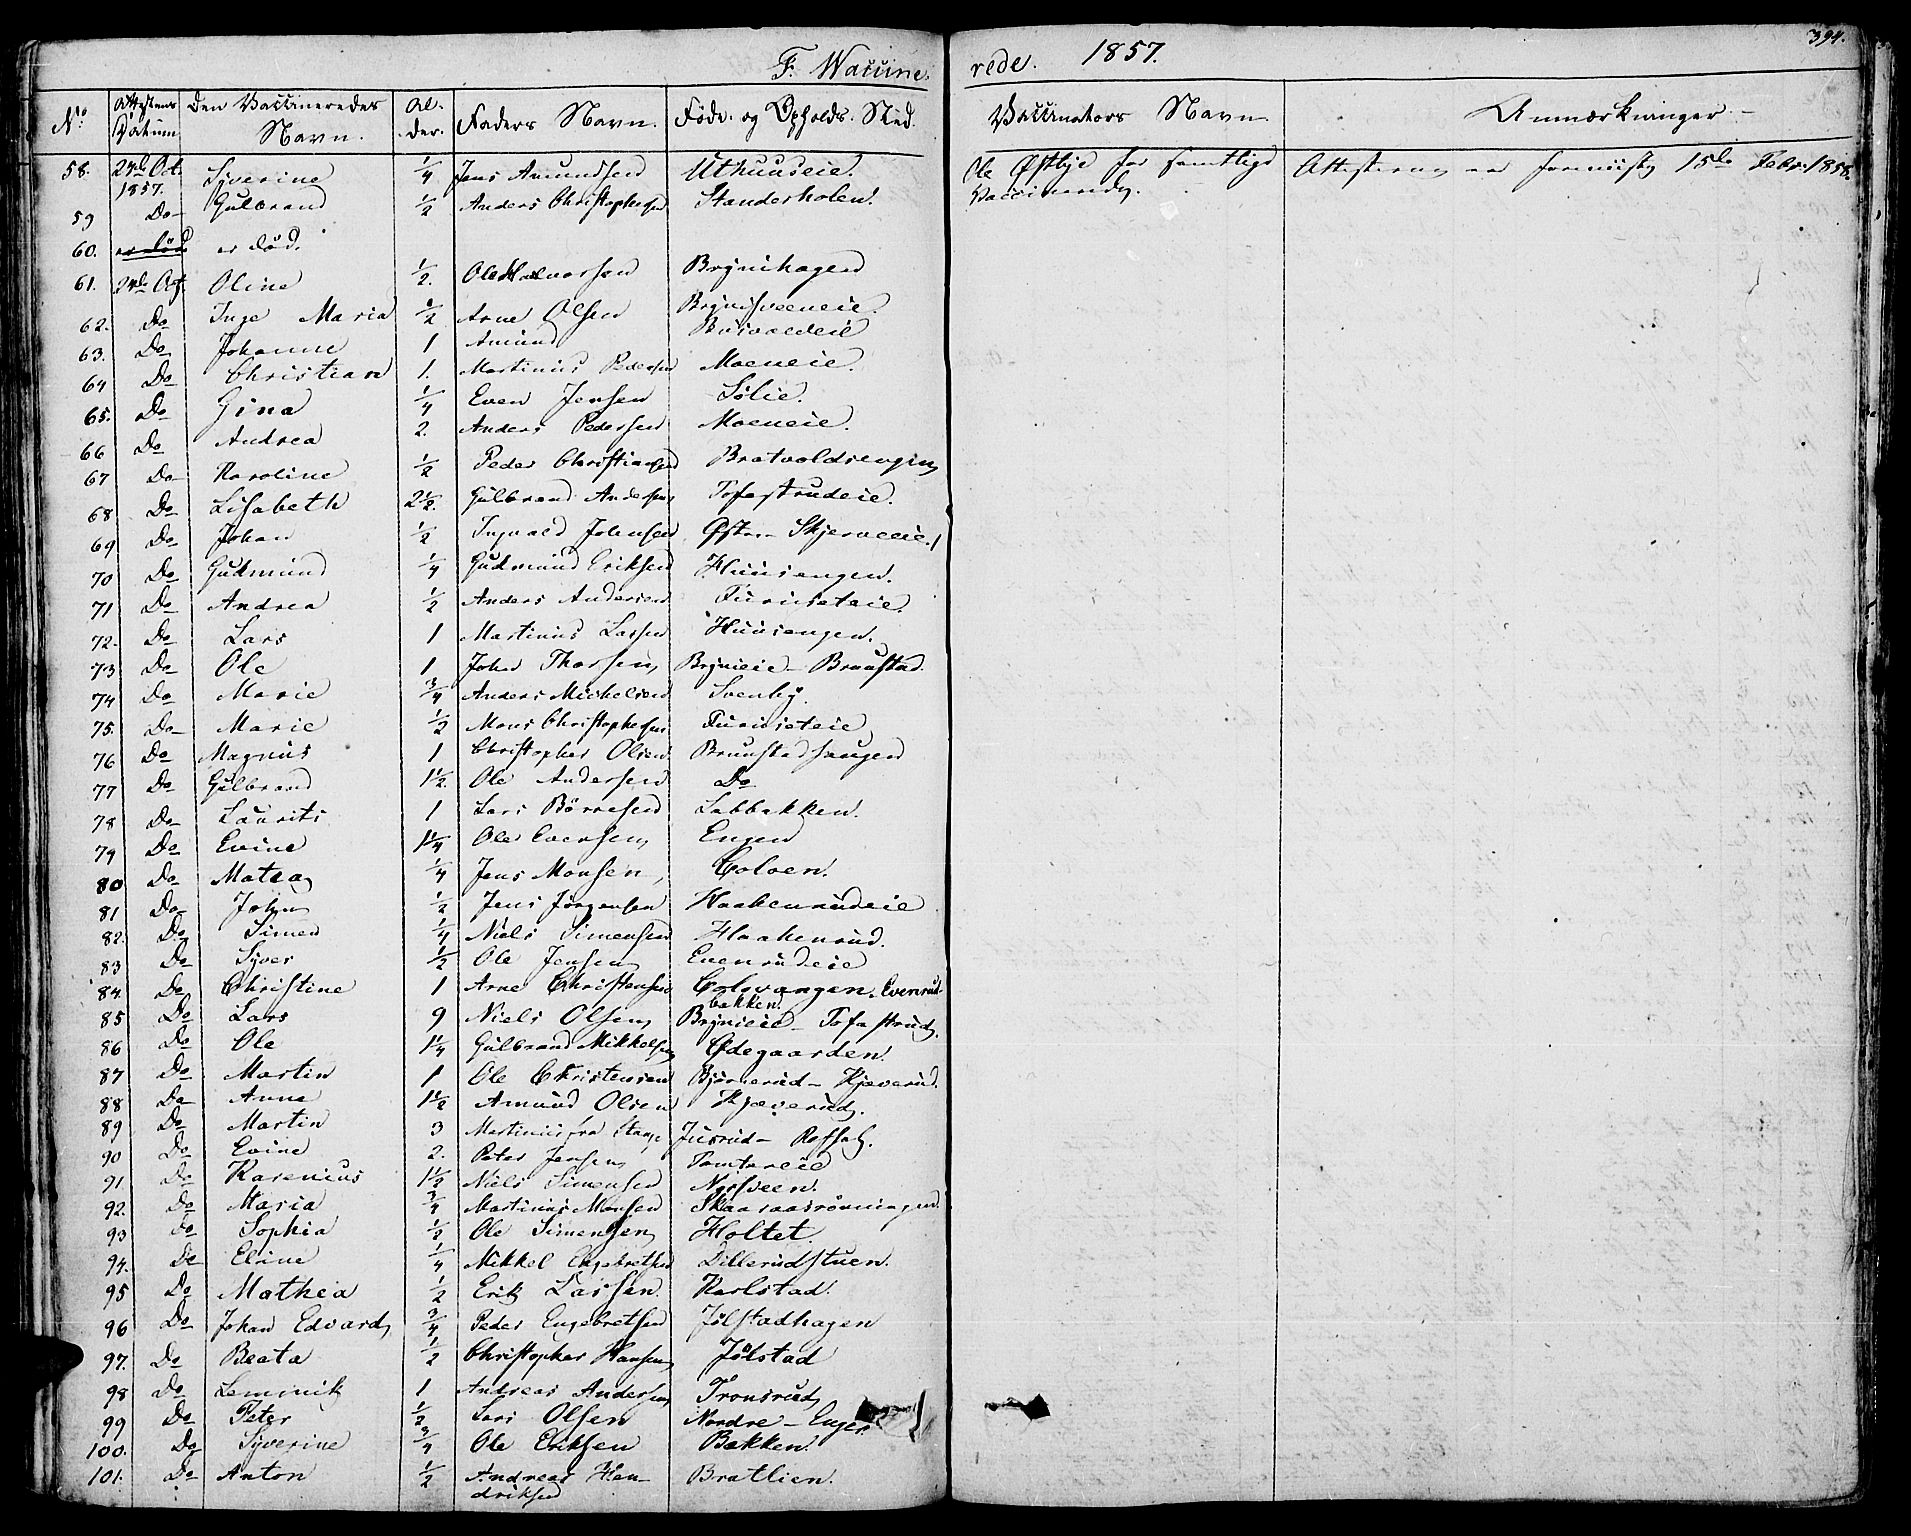 394.
F. Vaccine- rede. 1857.
No. Attestens Datum Den Vaccineredes Navn. Al- der. Faders Navn. Føde- og Opholds-Sted. Vaccinators Navn. Anmærkninger.
58. 24de Oct. 1857. Syverine 1/4 Jens Amundsen Uthuuseie. Ole Østbye for samtlige 15de Febr. 1858.
Vaccinerede.
59 Do Gulbrand 1/2 Anders Christophersen
60. er død er død.
61. 24de Oct. Oline 1/2. Ole Halvorsen Brynihagen
62. Do Inge Maria 1/2 Arne Olsen Brynisveeneie.
63. Do Johanne 1 Amund
64 Do Christian 1. Martinus Pedersen Moeneie.
65. Do Gina 1/4 Even Jensen Sølie.
66 Do Andrea 2. Anders Pedersen Moeneie.
67 Do Karoline 1/2 Peder Christiansen Bratvoldsengen
68 Do Lisabeth 2 1/2. Gulbrand Andersen Tofastrudeie.
69 Do Johan 1/2 Ingvald Johnsen Østre Skjerveeie.
70 Do Gudmund 1/4 Gudmund Eriksen Huusengen.
71 Do Andrea 1/2 Anders Andersen Furuseteie.
72. Do Lars 1 Martinus Larsen Huusengen.
73 Do Ole 1 John Thorsen Brynieie - Brunstad.
74 Do Marie 3/4 Anders Mickelsen Svenby.
75. Do Marie 1/2 Mons Christophersen Furuseteie
76 Do Magnus 1 Christopher Olsen Brunstadhaugen
77 Do Gulbrand 1 1/2. Ole Andersen Do
78 Do Laurits 1 Lars Børresen Labbakken.
79 Do Evine 1 1/4 Ole Evensen Engen
80 Do Matea 1/4 Jens Monsen Colven.
81 Do John 1/2 Jens Jørgensen Haakenrudeie
82. Do Simen 1/4 Niels Simensen Haakenrud.
83 Do Syver 1/2 Ole Jensen Evenrudeie
84. Do Christine 1 Arne Christensen Colsvangen. Evenrud-
bakken.
85 Do Lars 9 Niels Olsen Brynieie - Tofastrud.
86 Do Ole 1 1/4 Gulbrand Mikkelsen Ødegaarden.
87 Do Martin 1 Ole Christensen Bjørnerud - Kjæverud.
88 Do Anne 1 1/2 Amund Olsen Kjæverud.
89 Do Martin 3 Martinus fra Stange Jusrud -
90 Do Evine 2. Peter Jensen Tomtereie
91. Do Karenius 1 1/2 Niels Simensen Nysveen.
92. Do Maria 3/4 Martinus Monsen Skaaraasrønningen.
93 do Sophia 1/2 Ole Simensen Holtet.
94. Do Eline 1/4 Mikkel Engebretsen Dillerudstuen.
95 Do Mathea 1/2 Erik Larsen. Karlstad.
96 Do Johan Edvard 3/4 Peder Engebretsen Jølstadhagen
97. Do Beata 1/2 Christopher Hansen Jølstad
98 Do Leminik 1 Andreas Andersen Tronsrud
99 Do Peter 1/2 Lars Olsen Nordre - Enger.
100. Do Syverine 3/4 Ole Eriksen Bakken.
101. Do Anton 1/2 Andreas Hen- Bratlien.
driksen